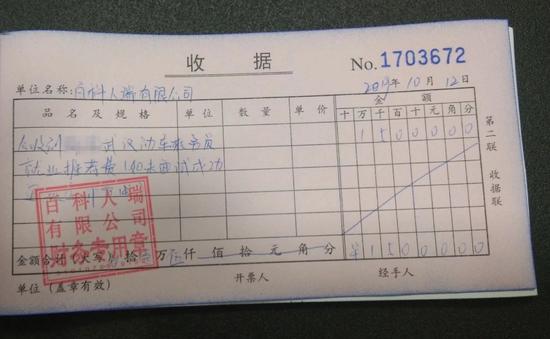 收据
No.1703672
单位名称:百科人瑞有限公司 2019年10月12日
品名及规格 单位 数量 单价 金额
十万千百十元角分
1500000
今收到 武汉动车乘务员
就业推荐费(如未面试成功
百科人瑞
有限公司
财务专用章
金额合计(大写) 拾 万 伍仟 佰 拾 元 角 分 ¥1500000
单位(盖章有效) 开票人 经手人
第二联 收据联